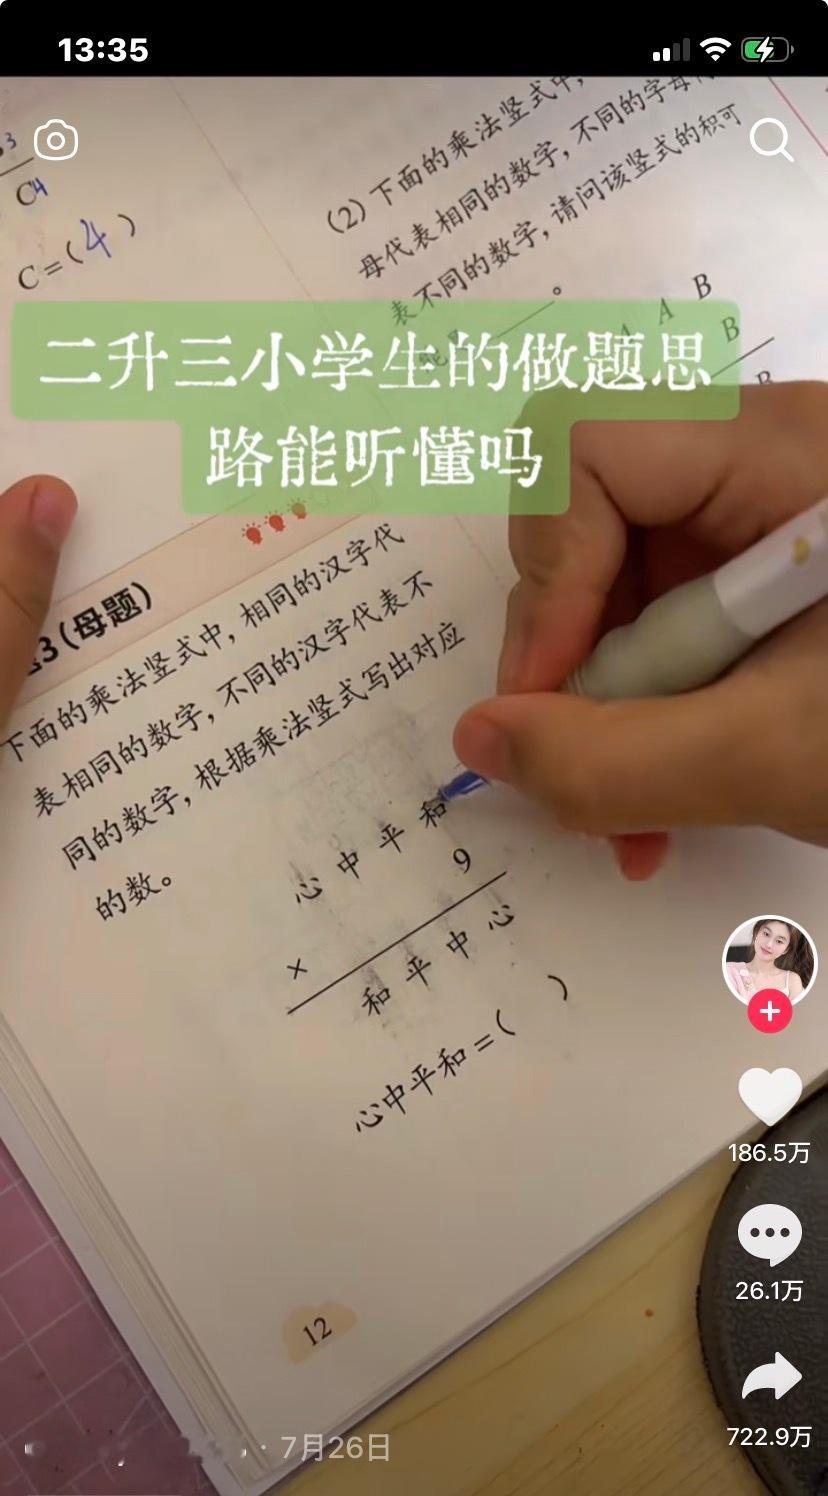 13:35
3
C4
C=(4)
(2)下面的乘法竖式中,
母代表相同的数字,不同的字母代
表不同的数字,请问该竖式的积可
能是______。
A A B
B
B
二升三小学生的做题思
路能听懂吗
3(母题)
下面的乘法竖式中,相同的汉字代
表相同的数字,不同的汉字代表不
同的数字,根据乘法竖式写出对应
的数。
心 中 平 和
× 9
和 平 中 心
心中平和=( )
12
186.5万
26.1万
722.9万
· 7月26日